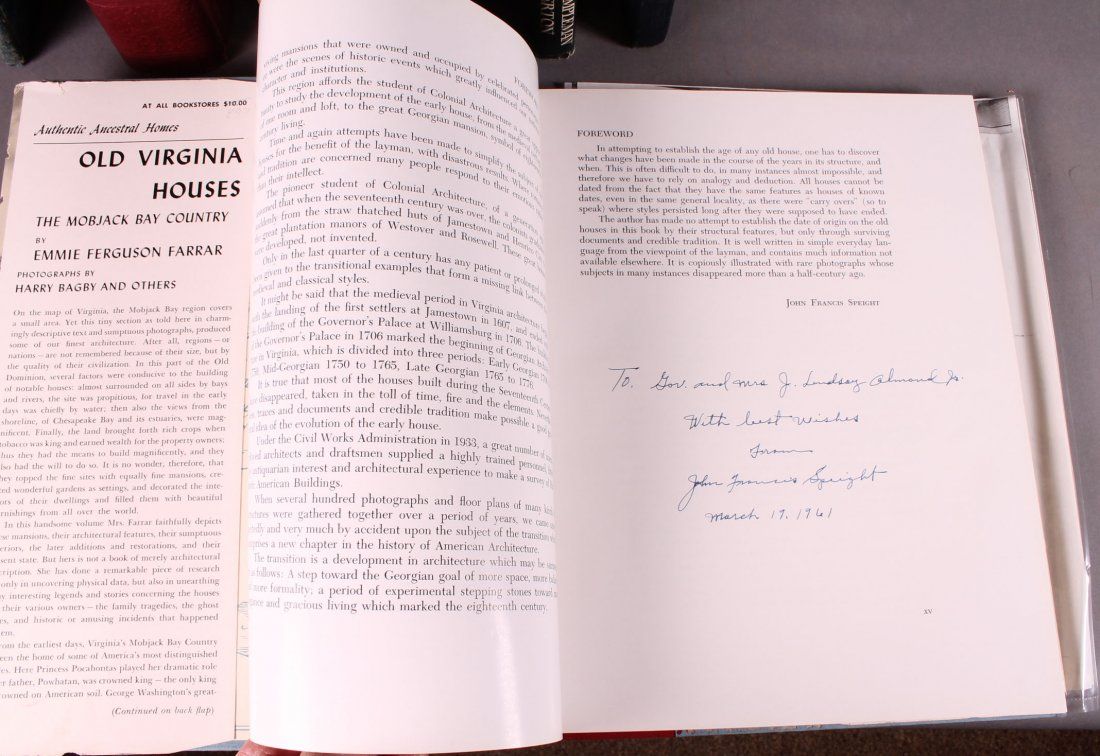 AT ALL BOOKSTORES $10.00
Authentic Ancestral Homes
OLD VIRGINIA
HOUSES
THE MOBJACK BAY COUNTRY
BY
EMMIE FERGUSON FARRAR
PHOTOGRAPHS BY
HARRY BAGBY AND OTHERS
On the map of Virginia, the Mobjack Bay region covers
a small area. Yet this tiny section as told here in charm-
ingly descriptive text and sumptuous photographs, produced
some of our finest architecture. After all, regions—or
nations—are not remembered because of their size, but by
the quality of their civilization. In this part of the Old
Dominion, several factors were conducive to the building
of notable houses: almost surrounded on all sides by bays
and rivers, the site was propitious, for travel in the early
days was chiefly by water; then also the views from the
shoreline, of Chesapeake Bay and its estuaries, were mag-
nificent. Finally, the land brought forth rich crops when
tobacco was king and earned wealth for the property owners;
thus they had the means to build magnificently, and they
also had the will to do so. It is no wonder, therefore, that
they topped the fine sites with equally fine mansions, cre-
ated wonderful gardens as settings, and decorated the inte-
ors of their dwellings and filled them with beautiful
rnishings from all over the world.
In this handsome volume Mrs. Farrar faithfully depicts
ese mansions, their architectural features, their sumptuous
eriors, the later additions and restorations, and their
sent state. But hers is not a book of merely architectural
cription. She has done a remarkable piece of research
only in uncovering physical data, but also in unearthing
y interesting legends and stories concerning the houses
their various owners—the family tragedies, the ghost
es, and historic or amusing incidents that happened
em.
rom the earliest days, Virginia's Mobjack Bay Country
een the home of some of America's most distinguished
es. Here Princess Pocahontas played her dramatic role
er father, Powhatan, was crowned king—the only king
rowned on American soil. George Washington's great-
(Continued on back flap)
ving mansions that were owned and occupied by celebrated
were the scenes of historic events which greatly influenced our
character and institutions.
This region affords the student of Colonial Architecture a
to study the development of the early house, from the medieval
one room and loft, to the great Georgian mansion, symbol of
century living.
Time and again attempts have been made to simplify the subject
for the benefit of the layman, with disastrous result. Where
tradition are concerned many people respond to their emotions
than their intellect.
The pioneer student of Colonial Architecture, of a generation
that when the seventeenth century was over, the colonists
from the straw thatched huts of Jamestown and Henrico
great plantation manors of Westover and Rosewell. These great
were developed, not invented.
Only in the last quarter of a century has any patient or prolonged
been given to the transitional examples that form a missing link between
medieval and classical styles.
It might be said that the medieval period in Virginia architecture
the landing of the first settlers at Jamestown in 1607, and
building of the Governor's Palace at Williamsburg in 1706. The
the Governor's Palace in 1706 marked the beginning of Georgian
in Virginia, which is divided into three periods: Early Georgian 1706
Mid-Georgian 1750 to 1765, Late Georgian 1765 to 1776.
It is true that most of the houses built during the Seventeenth
disappeared, taken in the toll of time, fire and the elements.
traces and documents and credible tradition make possible a good
idea of the evolution of the early house.
Under the Civil Works Administration in 1933, a great number of
architects and draftsmen supplied a highly trained personnel,
antiquarian interest and architectural experience to make a survey of
American Buildings.
When several hundred photographs and floor plans of many
were gathered together over a period of years, we came
and very much by accident upon the subject of the transition
a new chapter in the history of American Architecture.
The transition is a development in architecture which may be
as follows: A step toward the Georgian goal of more space, more
more formality; a period of experimental stepping stones toward
and gracious living which marked the eighteenth century.
FOREWORD
In attempting to establish the age of any old house, one has to discover
what changes have been made in the course of the years in its structure, and
when. This is often difficult to do, in many instances almost impossible, and
therefore we have to rely on analogy and deduction. All houses cannot be
dated from the fact that they have the same features as houses of known
dates, even in the same general locality, as there were "carry overs" (so to
speak) where styles persisted long after they were supposed to have ended.
The author has made no attempt to establish the date of origin on the old
houses in this book by their structural features, but only through surviving
documents and credible tradition. It is well written in simple everyday lan-
guage from the viewpoint of the layman, and contains much information not
available elsewhere. It is copiously illustrated with rare photographs whose
subjects in many instances disappeared more than a half-century ago.
JOHN FRANCIS SPEIGHT
To. Gov. and Mrs J. Lindsay Almond Jr.
With best Wishes
From
John Francis Speight
March 17, 1961
xv